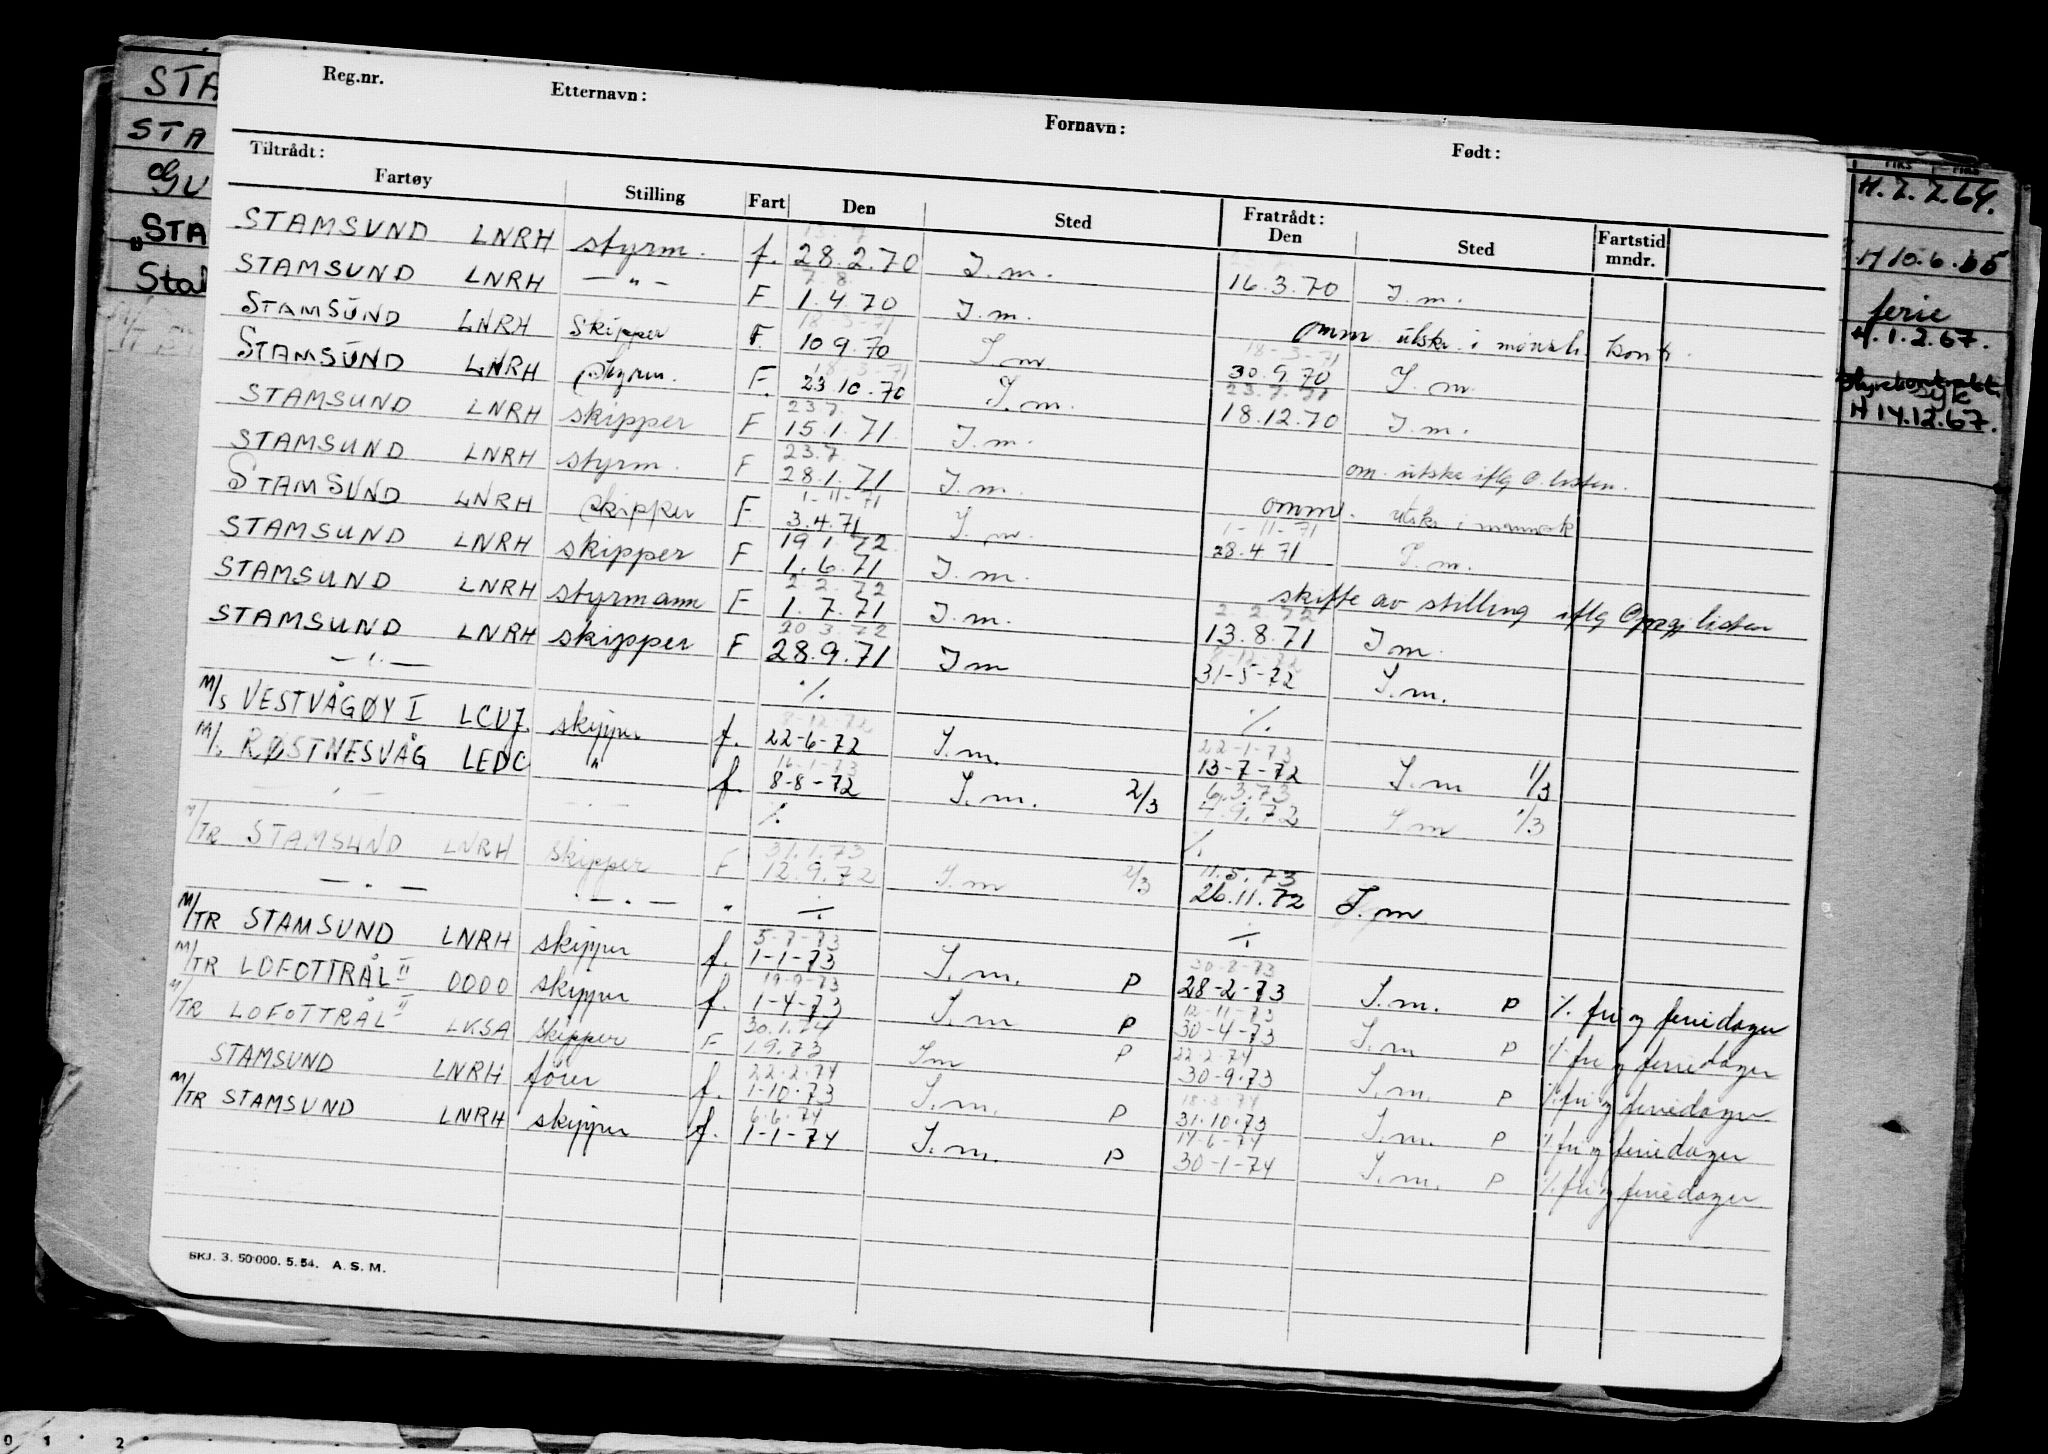 Reg.nr. Etternavn: Fornavn: Født:
Tiltrådt: Fratrådt:
Fartøy Stilling Fart Den Sted Den Sted Fartstid mndr.
STAMSUND LNRH styrm. f. 28.2.70 I.m. 16.3.70 I.m.
STAMSUND LNRH — " — F 7.8. 1.4.70 I.m. omm. utskr. i mønstr. kontr.
STAMSUND LNRH Skipper F. 18-3-71 10.9.70 I.m 18-3-71 30.9.70 I.m.
STAMSUND LNRH Styrm. F. 18.3.71 23.10.70 I.m. 23.7.71 18.12.70 I.m.
STAMSUND LNRH skipper F 23.7. 15.1.71. I.m. om. utskr iflg O.listen.
STAMSUND LNRH styrm. F 23.7. 28.1.71 I.m. omm. utskr i
STAMSUND LNRH Skipper F. 1-11-71 3.4.71 I.m. 1-11-71 28.4.71 I.m.
STAMSUND LNRH skipper F 19.1.72 1.6.71 I.m. skifte av stilling iflg Oppg. listen
STAMSUND LNRH styrmann F 2.2.72 1.7.71 I.m. 2.2.72 13.8.71 I.m.
STAMSUND LNRH skipper F 20.3.72 28.9.71 I m 31-5-72 I.m.
— " — % %
M/S VESTVÅGØY I LCVJ. skipper f. 8-12-72 22-6-72 I.m. 22-1-73 13-7-72 I.m 1/3
M/S RØSTNESVÅG LEDC " f. 16-1-73 8-8-72 I.m. 2/3 6.3.73 4.9.72 I m 1/3
— " — — " — % %
M/TR STAMSUND LNRH skipper F 31.1.73 12.9.72 I.m 2/3 11.5.73 26.11.72 I.m
— " — — " — " % %
M/TR STAMSUND LNRH skipper f. 5-7-73 1-1-73 I.m. P 30-8-73 28-2-73 I.m. P % fri og feriedager
M/TR LOFOTTRÅL II OOOO skipper f. 19-9-73 1-4-73 I.m P 12-11-73 30-4-73 I.m P % fri og feriedager
M/TR LOFOTTRÅL II LKSA skipper F 30.1.74 1.9.73 Im P 22-2-74 30-9-73 I.m. P % fri og feriedager
STAMSUND LNRH fører f. 22-2-74 1-10-73 I.m. P 18-3-74 31.10.73 I.m. P % fri og feriedager
M/TR STAMSUND LNRH skipper f. 6.6.74 1-1-74 I.m. P 14-6-74 30-1-74 I.m. P % fri og feriedager
SKJ. 3. 50'000. 5.54. A. S. M.
STA
STA
GU
"STA
Sta
H.2.2.64.
H 10.6.65
ferie
H.1.2.67.
syk
H 14.12.67.
0 1 2